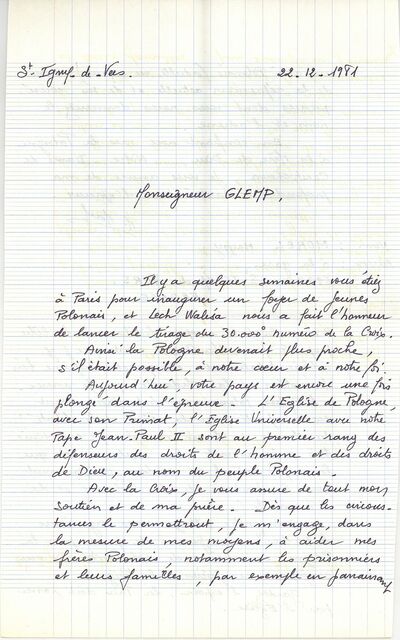 St Igny-de-Vers. 22-12-1981
Monseigneur GLEMP,
Il y a quelques semaines vous étiez
à Paris pour inaugurer un foyer de Jeunes
Polonais, et Lech Walésa nous a fait l'honneur
de lancer le tirage du 30.000° numéro de la Croix.
Ainsi la Pologne devenait plus proche,
s'il était possible, à notre cœur et à notre foi.
Aujourd'hui, votre pays est encore une fois
plongé dans l'épreuve. L'Eglise de Pologne,
avec son Primat, l'Eglise Universelle avec notre
Pape Jean-Paul II sont au premier rang des
défenseurs des droits de l'homme et des droits
de Dieu, au nom du peuple Polonais.
Avec la Croix, je vous assure de tout mon
soutien et de ma prière. Dès que les circons-
tances le permettront, je m'engage, dans
la mesure de mes moyens, à aider mes
frères Polonais, notamment les prisonniers
et leurs familles, par exemple en parrainant